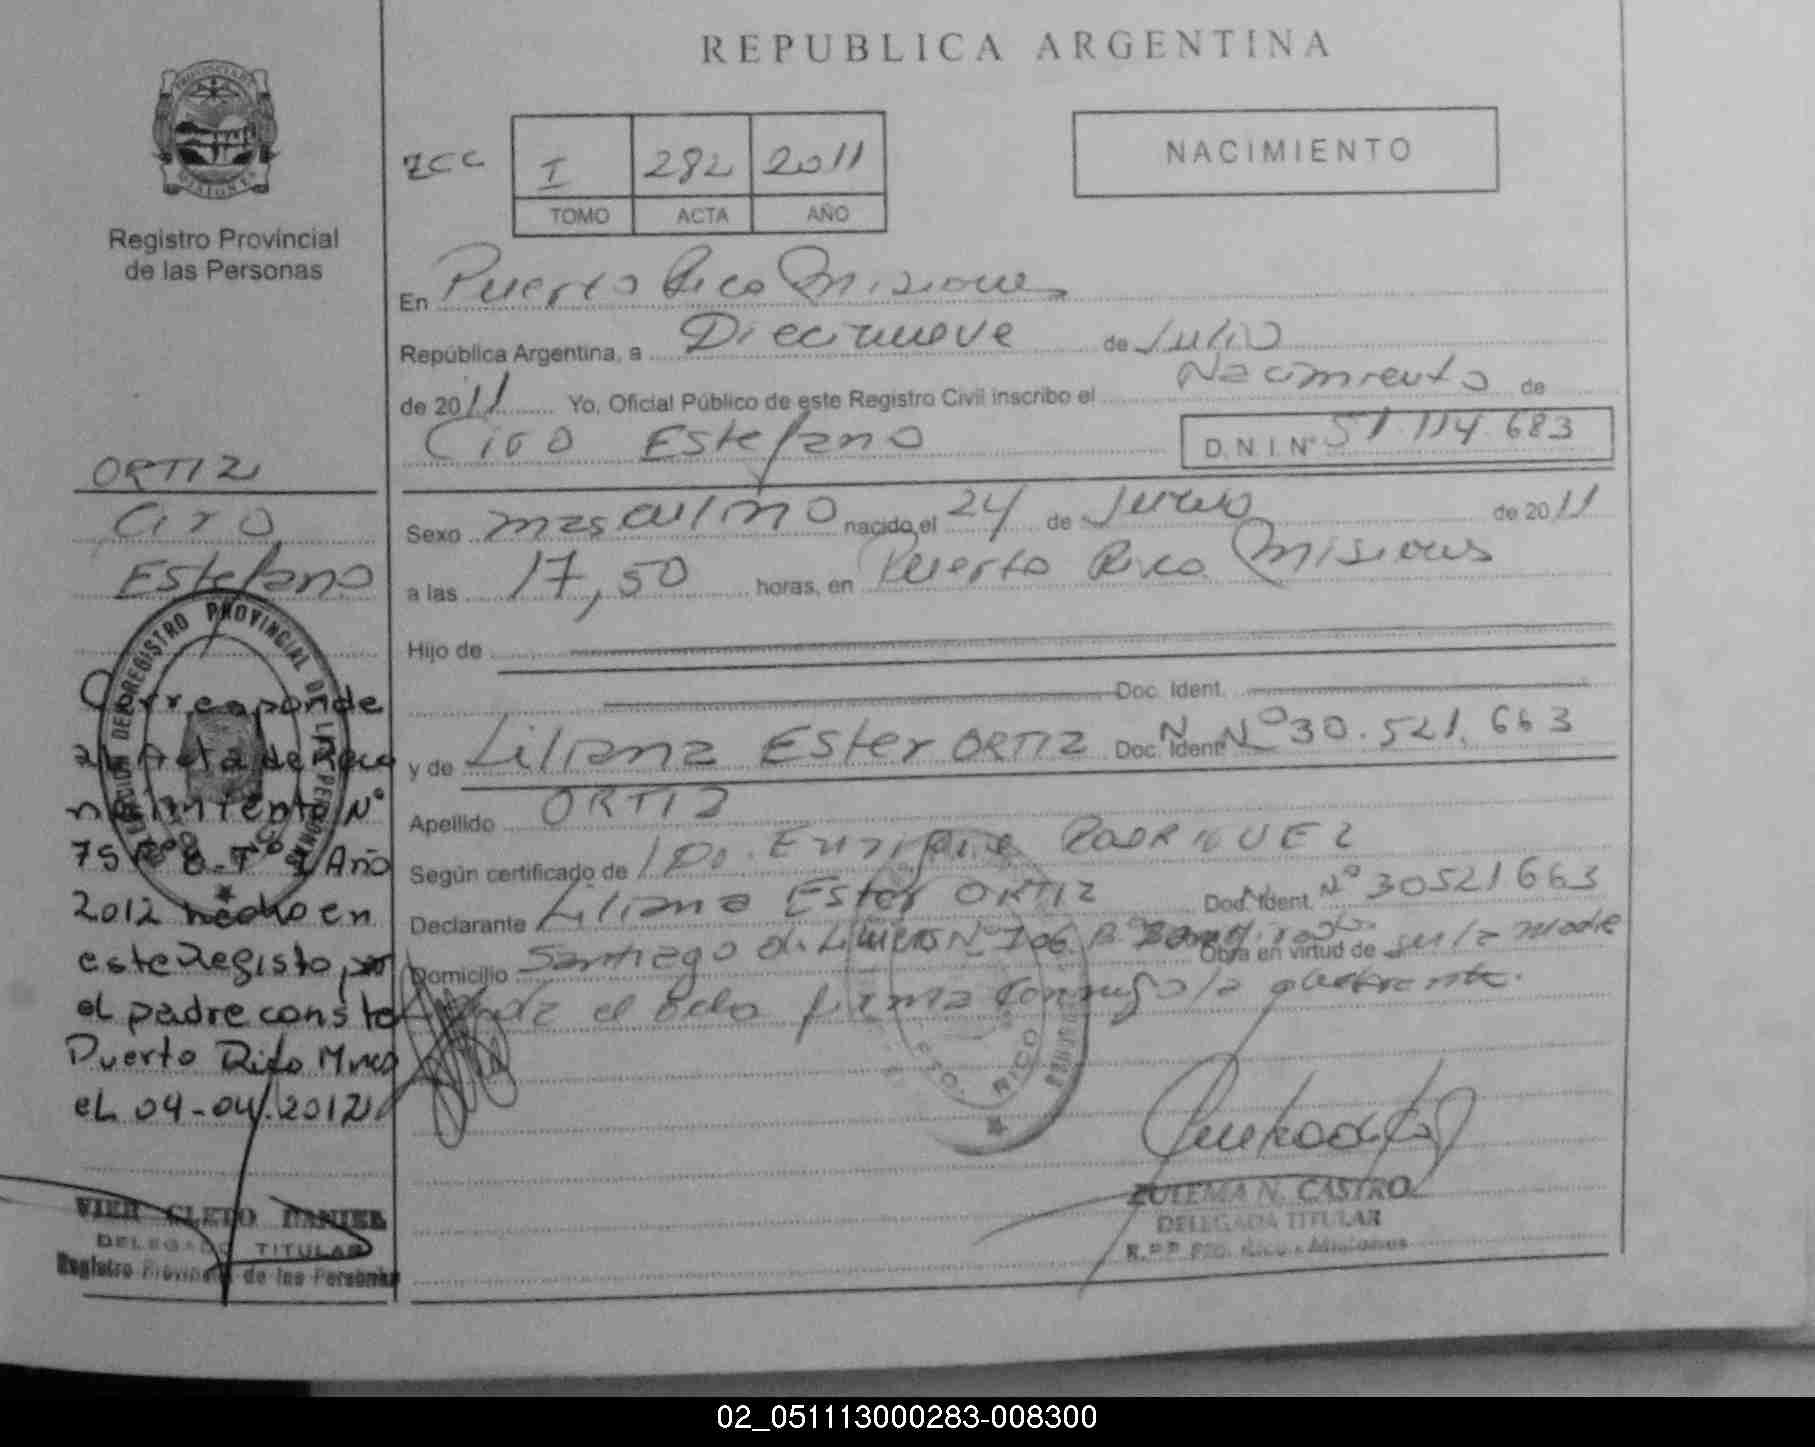 REPUBLICA ARGENTINA
PROVINCIA DE MISIONES
Registro Provincial
de las Personas
I 282 2011
TOMO ACTA AÑO
NACIMIENTO
En Puerto Rico Misiones
República Argentina, a Diecinueve de Julio
de 2011 Yo, Oficial Público de este Registro Civil inscribo el Nacimiento de
Ciro Estefano D.N.I.Nº 51.114.683
ORTIZ
Ciro
Estefano
Sexo masculino nacido el 24 de Junio de 2011
a las 17,50 horas, en Puerto Rico Misiones
Hijo de
Doc. Ident.
y de Liliana Ester ORTIZ Doc. Ident. Nº 30.521.663
Apellido ORTIZ
Según certificado de Enrique RODRIGUEZ
Declarante Liliana Ester ORTIZ Doc. Ident. Nº 30521663
Domicilio Santiago de Liniers Nº 706 Obra en virtud de ser la madre
el acta firma conmigo la
Corresponde
al Acta de Reco
nocimiento Nº
75 Fº 8-Tº I Año
2012 hecho en
este Registo, por
el padre conste
Puerto Rico Mnes
el 04-04-2012
REGISTRO PROVINCIAL DE LAS PERSONAS
PTO. RICO
VIER CLETO DANIEL
DELEGADO TITULAR
Registro Provincial de las Personas
ZULEMA N. CASTRO
DELEGADA TITULAR
R.P.P. Pto. Rico - Misiones
02_051113000283-008300